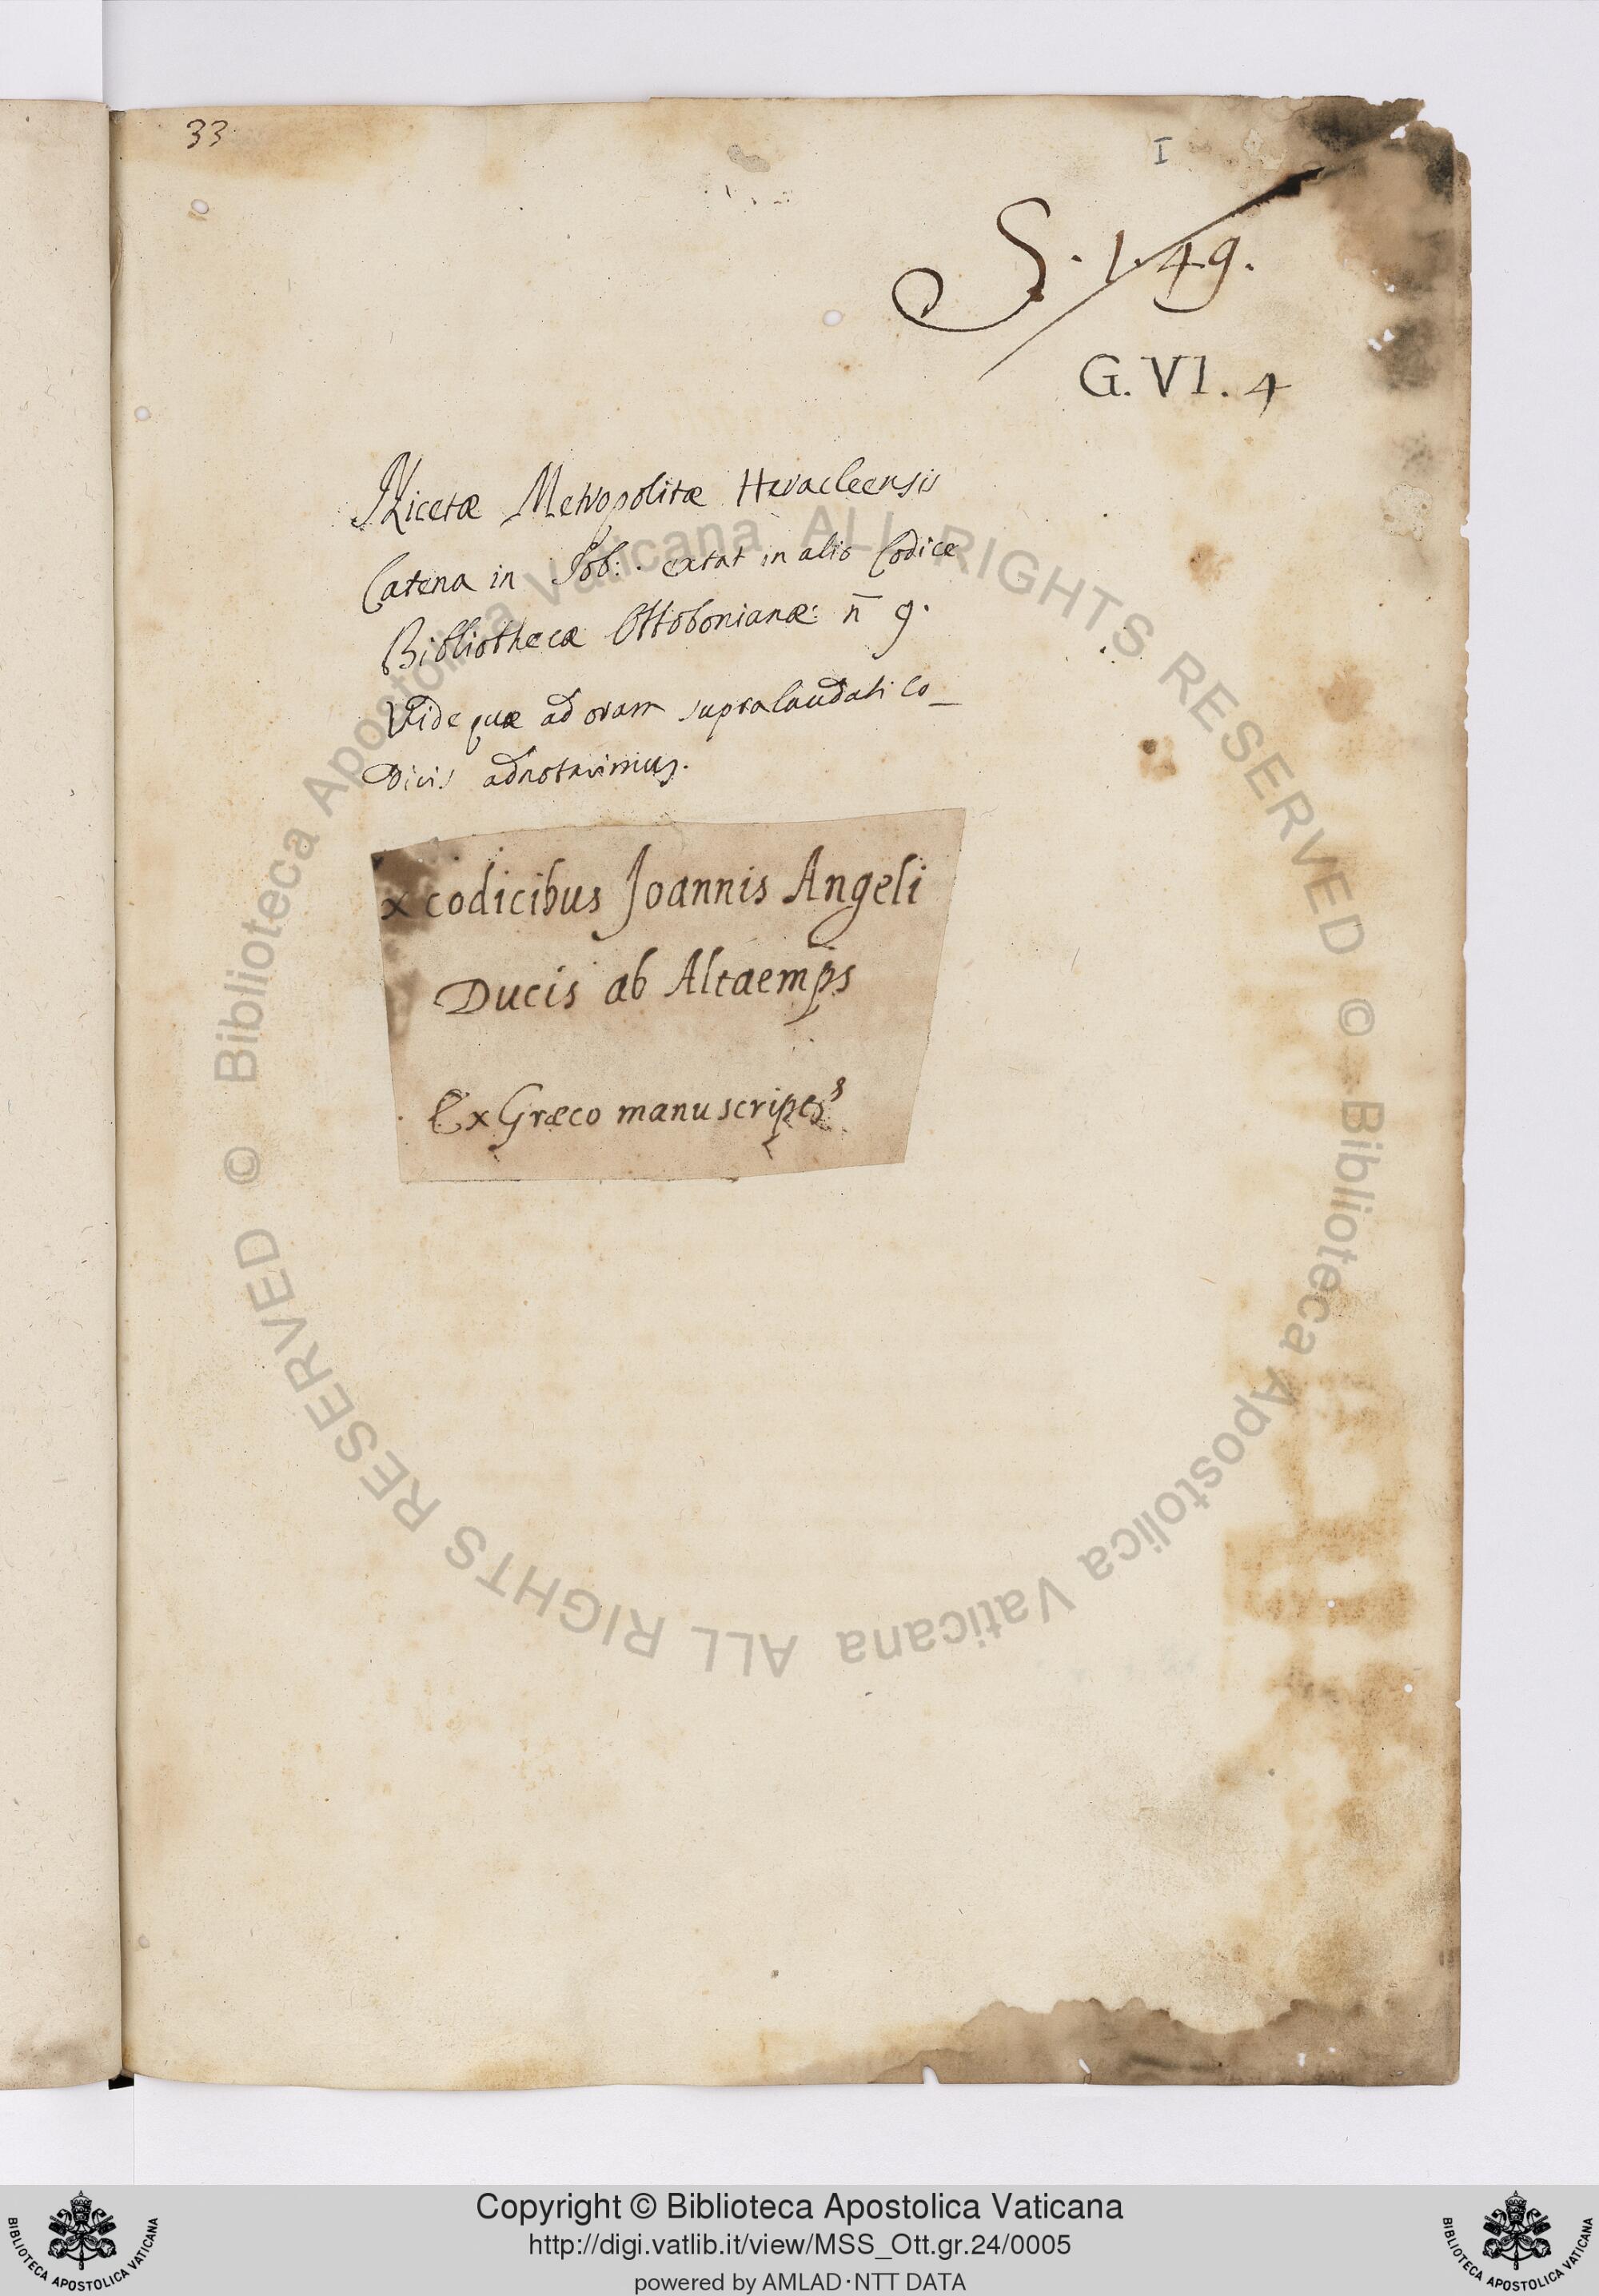 33
I
S. 1. 49.
G. VI. 4
Nicetæ Metropolitæ Heracleensis
Catena in Job: . extat in alio Codice
Bibliothecæ Ottobonianæ: n̄ 9.
Vide quæ ad oram supralaudati Co_
dicis adnotavimus.
x codicibus Joannis Angeli
Ducis ab Altaemps
Ex Græco manuscripto
© Biblioteca Apostolica Vaticana ALL RIGHTS RESERVED
© Biblioteca Apostolica Vaticana ALL RIGHTS RESERVED
Copyright © Biblioteca Apostolica Vaticana
http://digi.vatlib.it/view/MSS_Ott.gr.24/0005
powered by AMLAD·NTT DATA
BIBLIOTECA APOSTOLICA VATICANA
BIBLIOTECA APOSTOLICA VATICANA